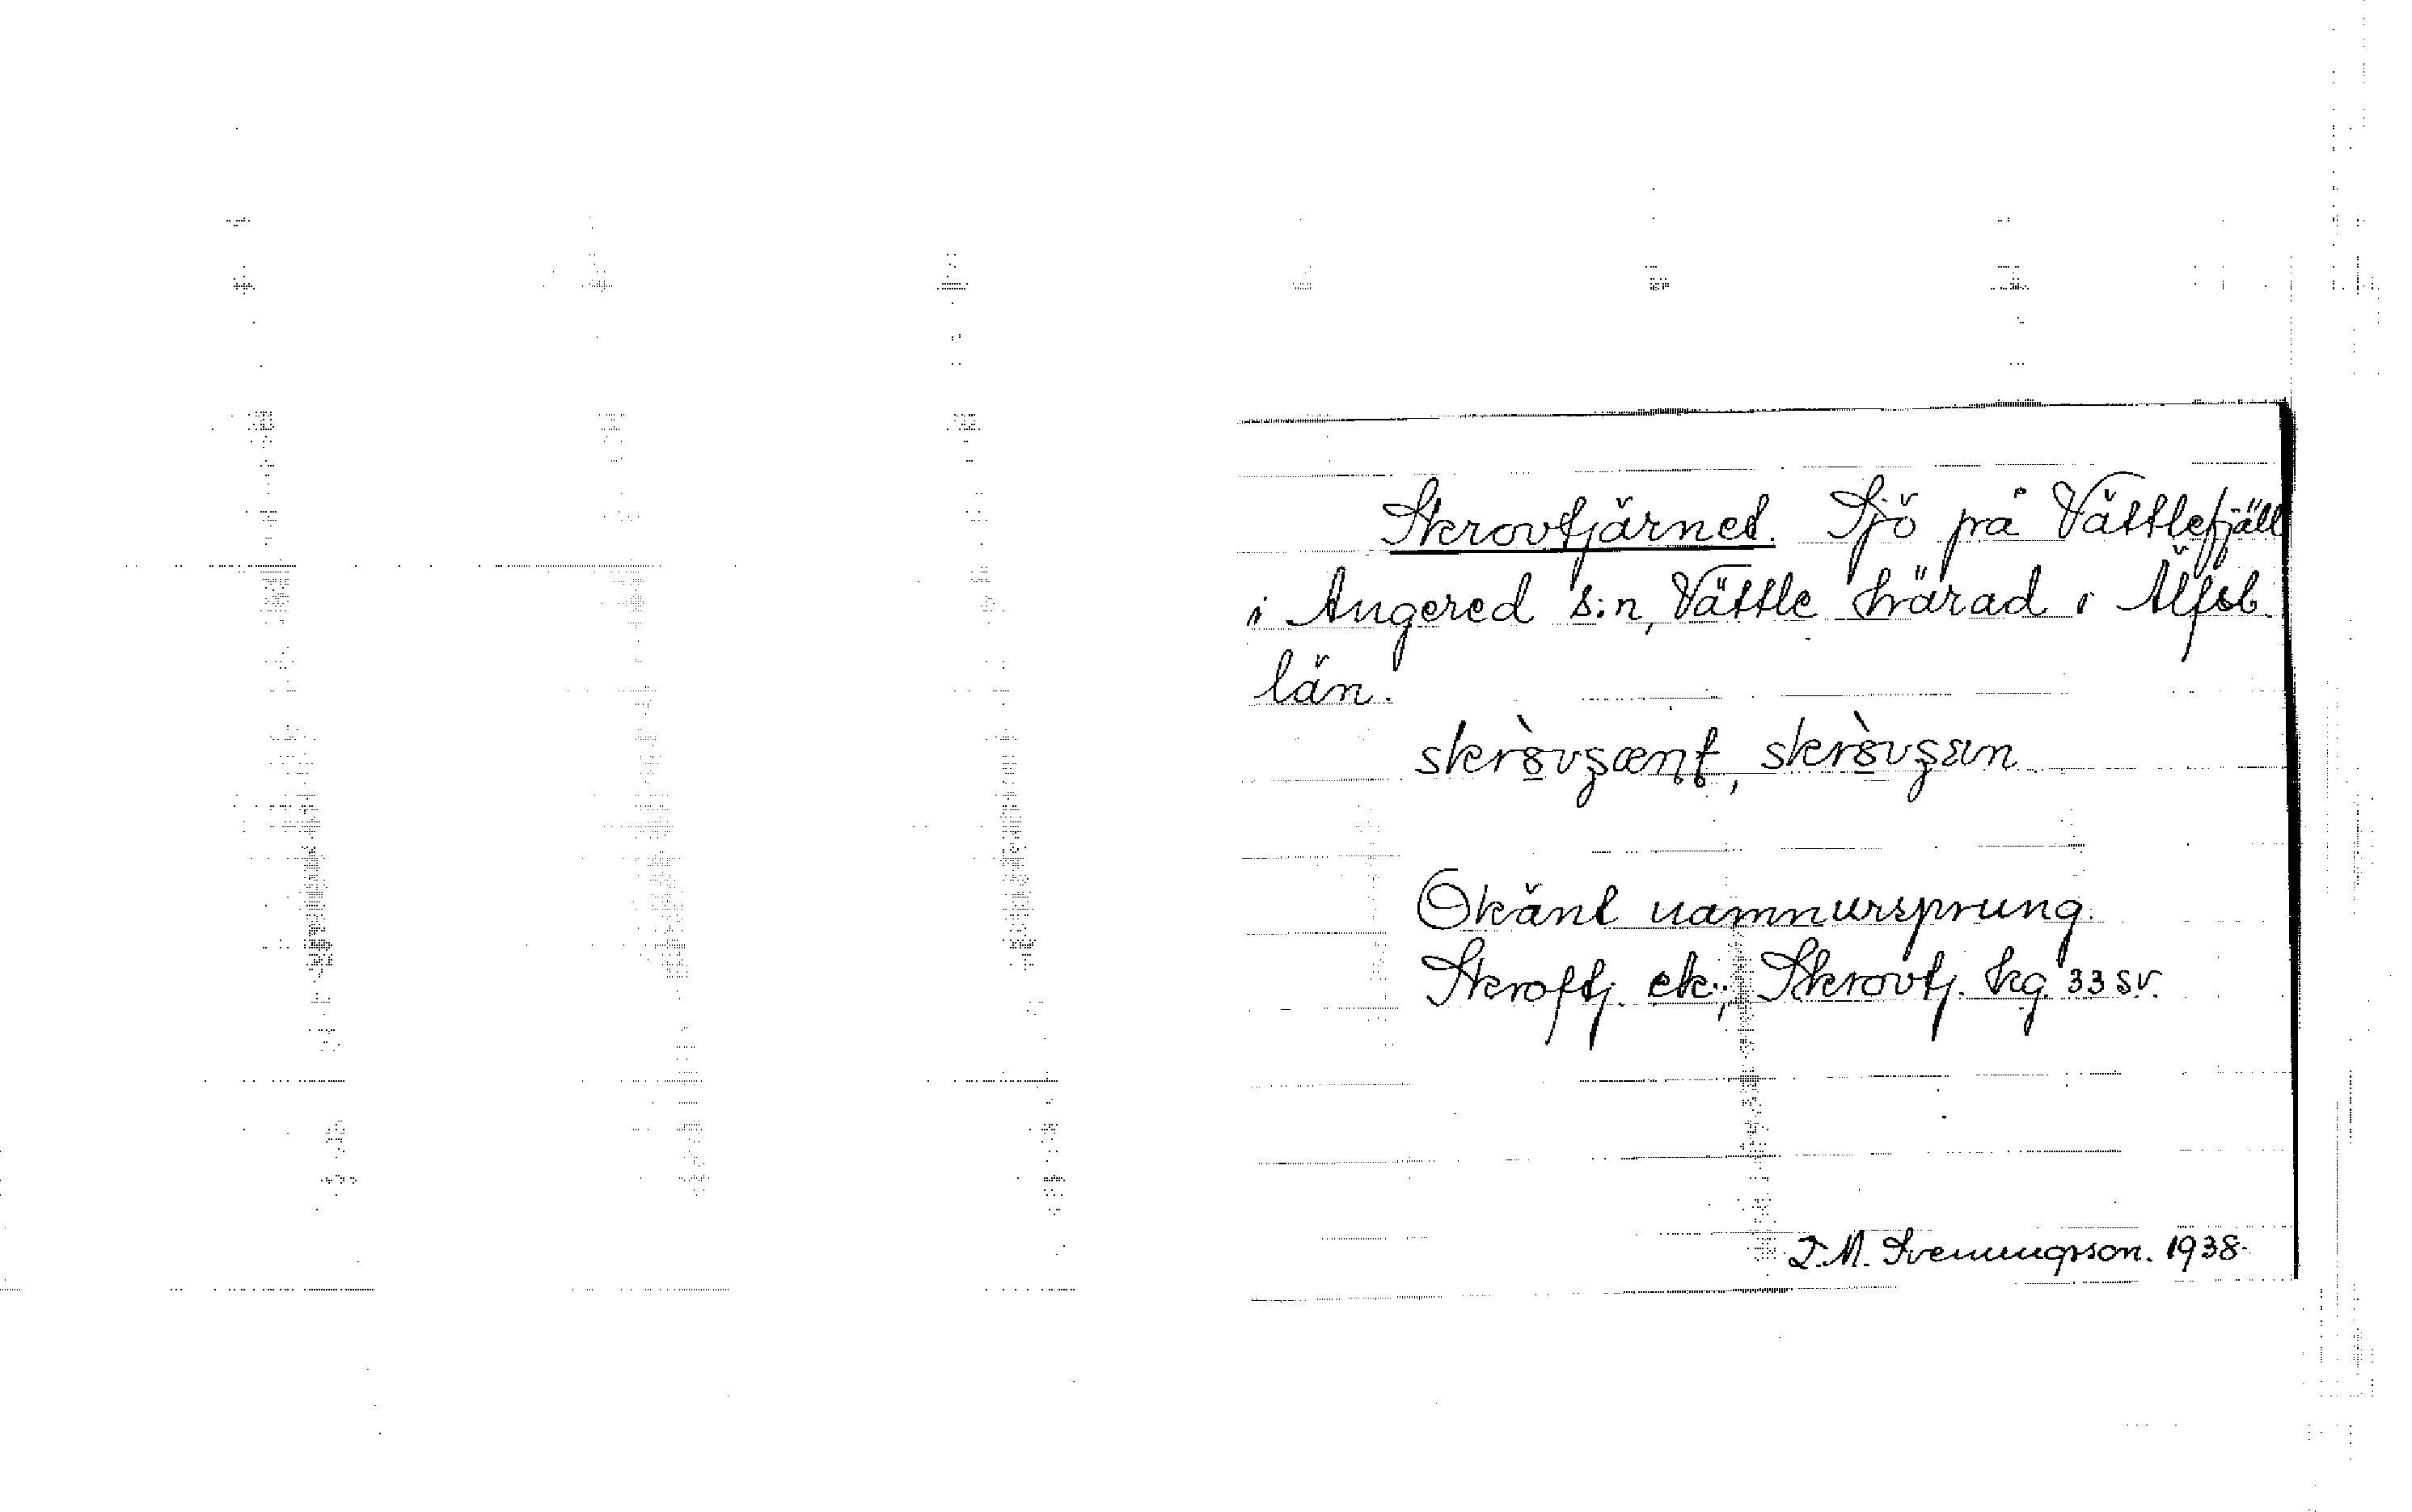 Skrovtjärnet. Sjö på Vättlefjäll
i Angered s:n, Vättle härad i Älfsb.
län.
Okänt namnursprung.
Skroftj. ek.; Skrovtj. hg. 33 sv.
Svenungsson. 1938.